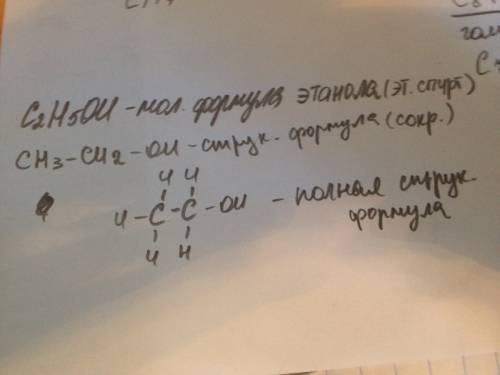 C2H5OH - мол. формула этанола (эт. спирт)
CH3-CH2-OH - струк. формула (сокр.)
H H
H-C-C-OH - полная струк.
H H
формула